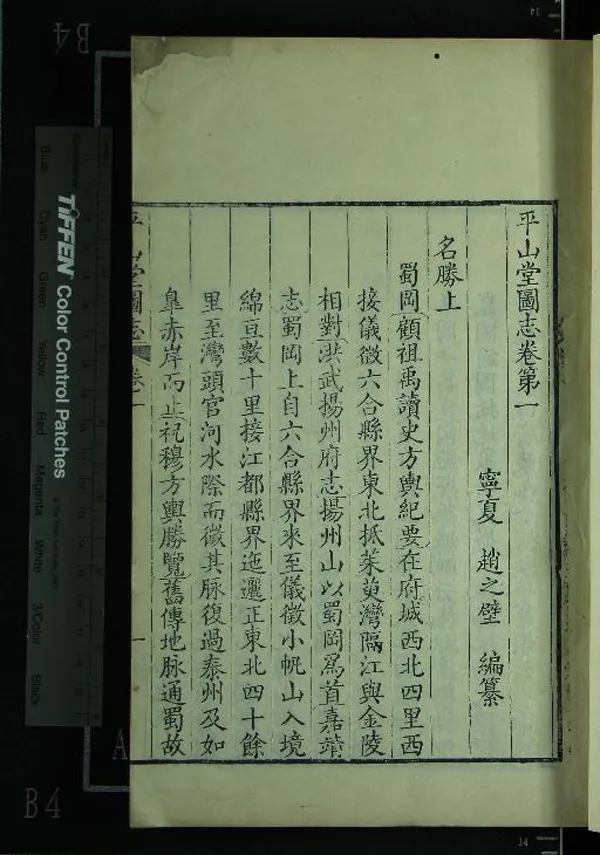 平山堂圖志卷第一
寧夏 趙之壁 編纂
名勝上
蜀岡顧祖禹讀史方輿紀要在府城西北四里西
接儀徵六合縣界東北抵茱萸灣隔江與金陵
相對洪武揚州府志揚州山以蜀岡爲首嘉靖
志蜀岡上自六合縣界來至儀徵小帆山入境
綿亘數十里接江都縣界迤邐正東北四十餘
里至灣頭官河水際而微其脉復過泰州及如
臯赤岸而止祝穆方輿勝覽舊傳地脉通蜀故
平山堂圖志 卷一 一
TIFFEN Color Control Patches
Blue Cyan Green Yellow Red Magenta White 3/Color Black
B4
B4
A
14
14